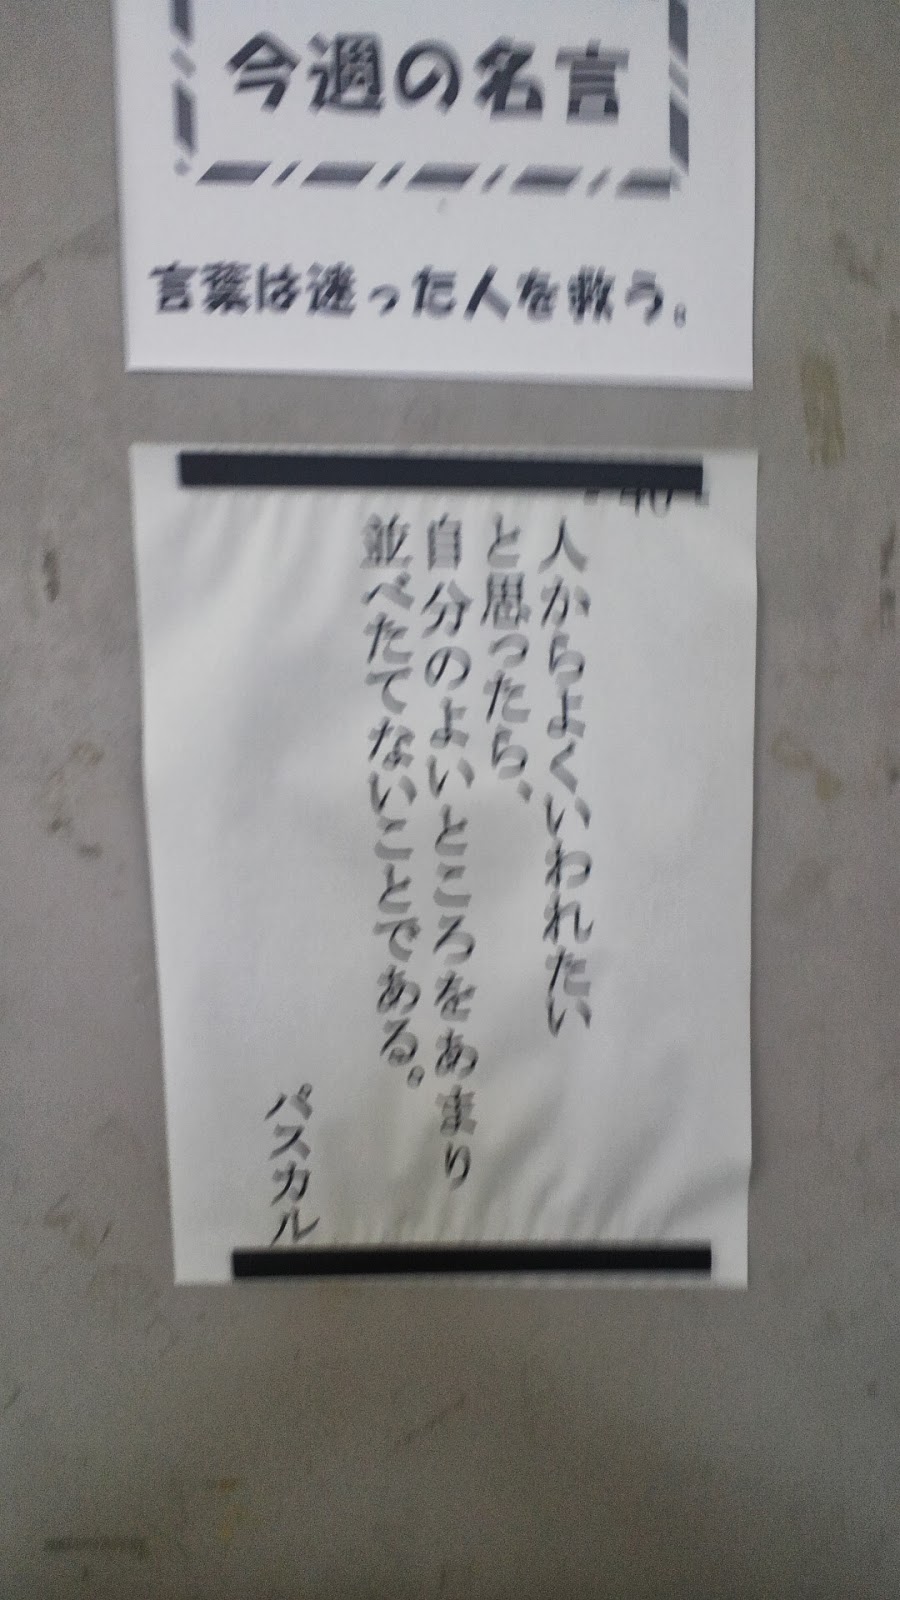 今週の名言
言葉は迷った人を救う。
人からよくいわれたい
と思ったら、
自分のよいところをあまり
並べたてないことである。
パスカル